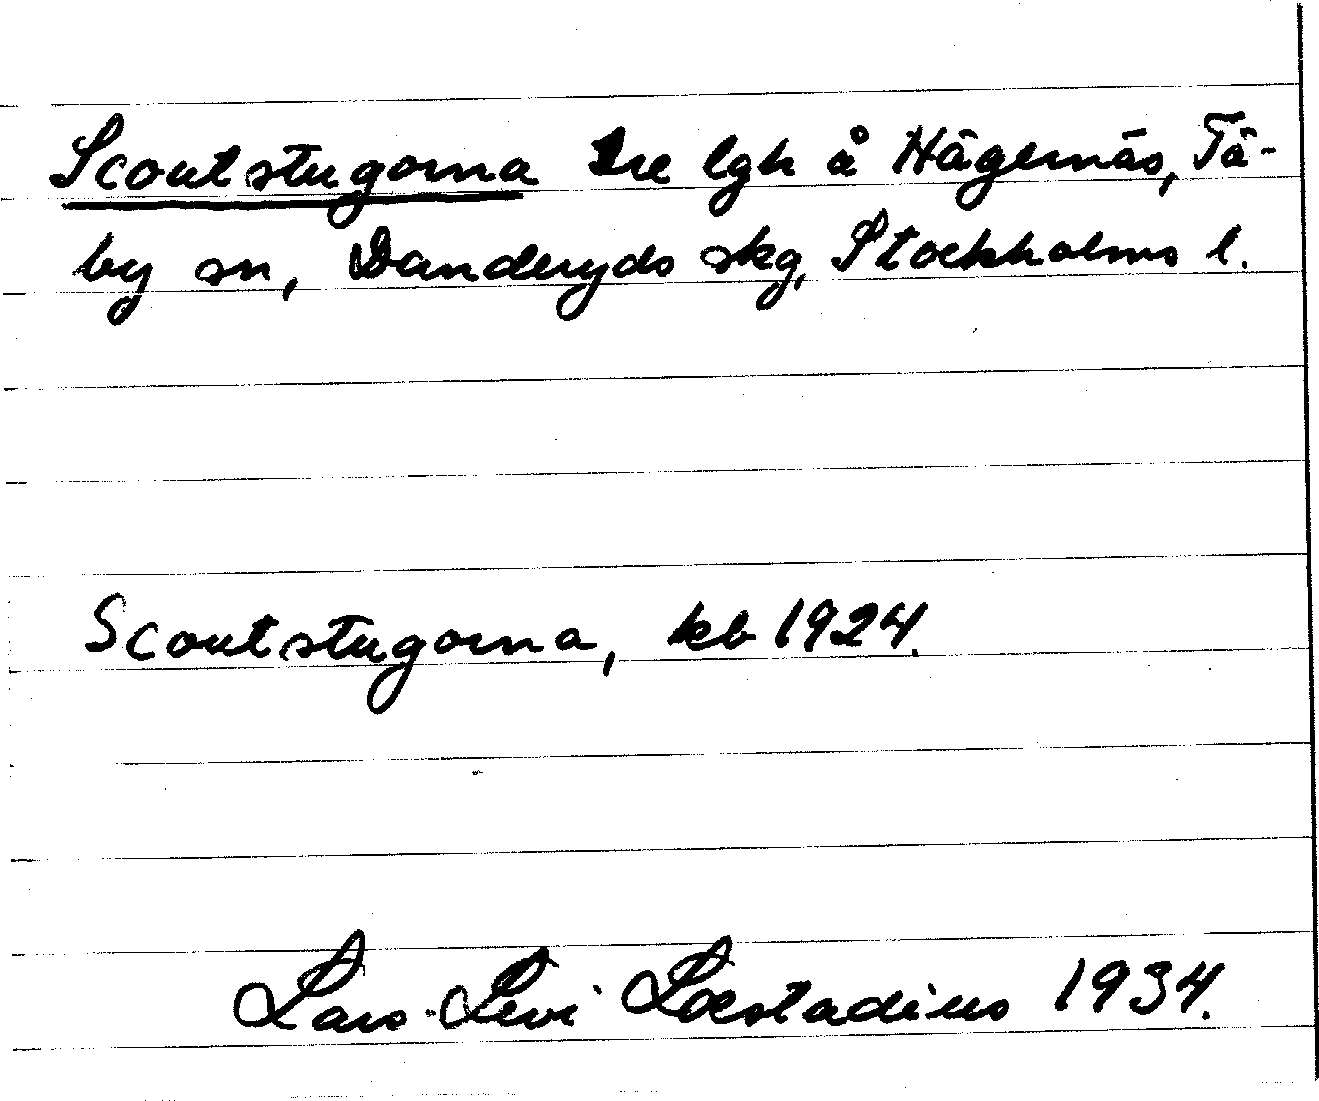 Scoutstugorna tre lgh å Hägernäs, Tä-
by sn, Danderyds skg, Stockholms l.
Scoutstugorna, kb 1924.
Lars-Levi Læstadius 1934.